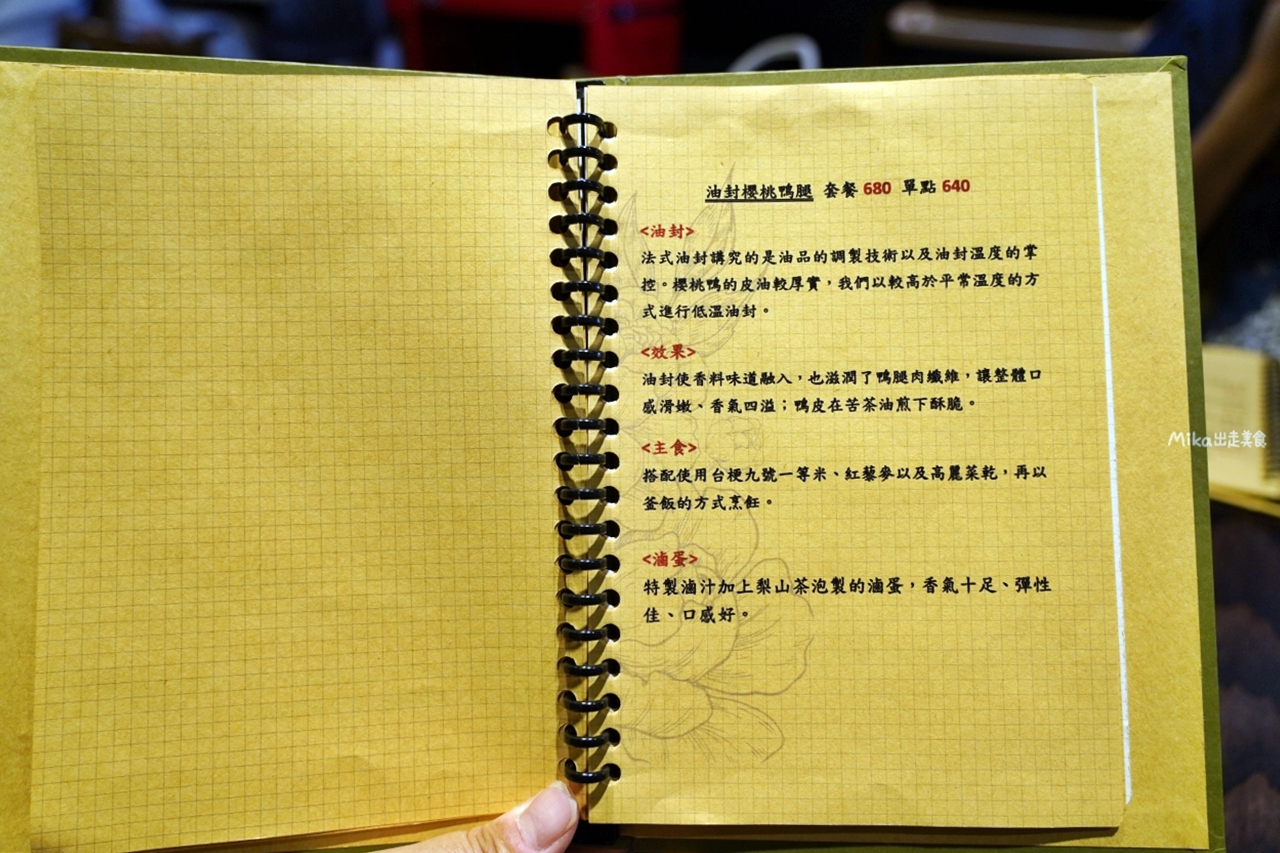 油封櫻桃鴨腿 套餐 680 單點 640
<油封>
法式油封講究的是油品的調製技術以及油封溫度的掌
控。櫻桃鴨的皮油較厚實，我們以較高於平常溫度的方
式進行低溫油封。
<效果>
油封使香料味道融入，也滋潤了鴨腿肉纖維，讓整體口
感滑嫩、香氣四溢；鴨皮在苦茶油煎下酥脆。
<主食>
搭配使用台梗九號一等米、紅藜麥以及高麗菜乾，再以
釜飯的方式烹飪。
<滷蛋>
特製滷汁加上梨山茶泡製的滷蛋，香氣十足、彈性
佳、口感好。
Mika出走美食